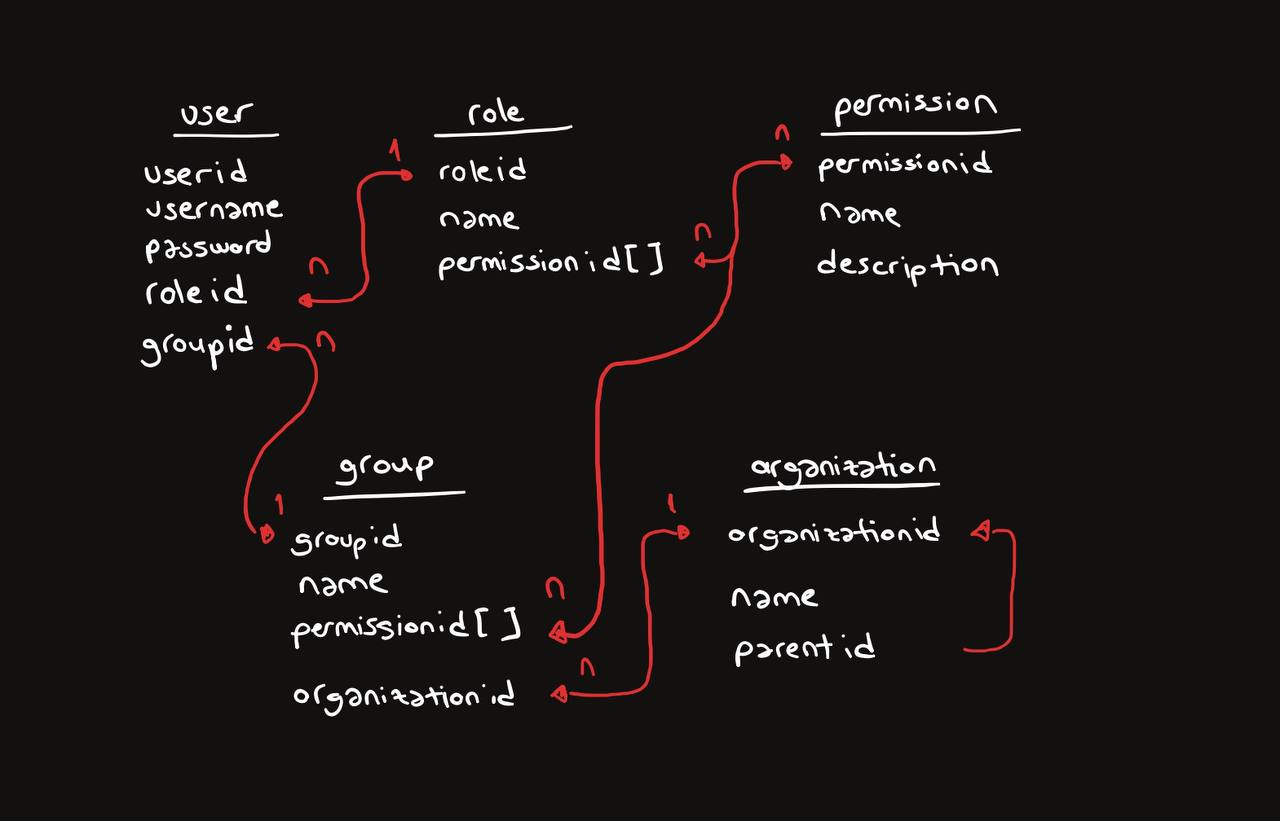 user
userid
username
password
roleid
groupid
n
n
1
role
roleid
name
permissionid[ ]
n
n
permission
permissionid
name
description
1
group
groupid
name
permissionid[ ]
organizationid
n
n
1
organization
organizationid
name
parentid